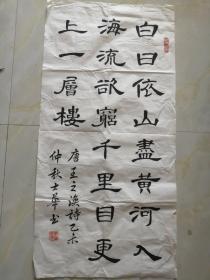 白日依山盡黄河入
海流欲窮千里目更
上一層樓
唐王之涣詩乙未
仲秋士華书